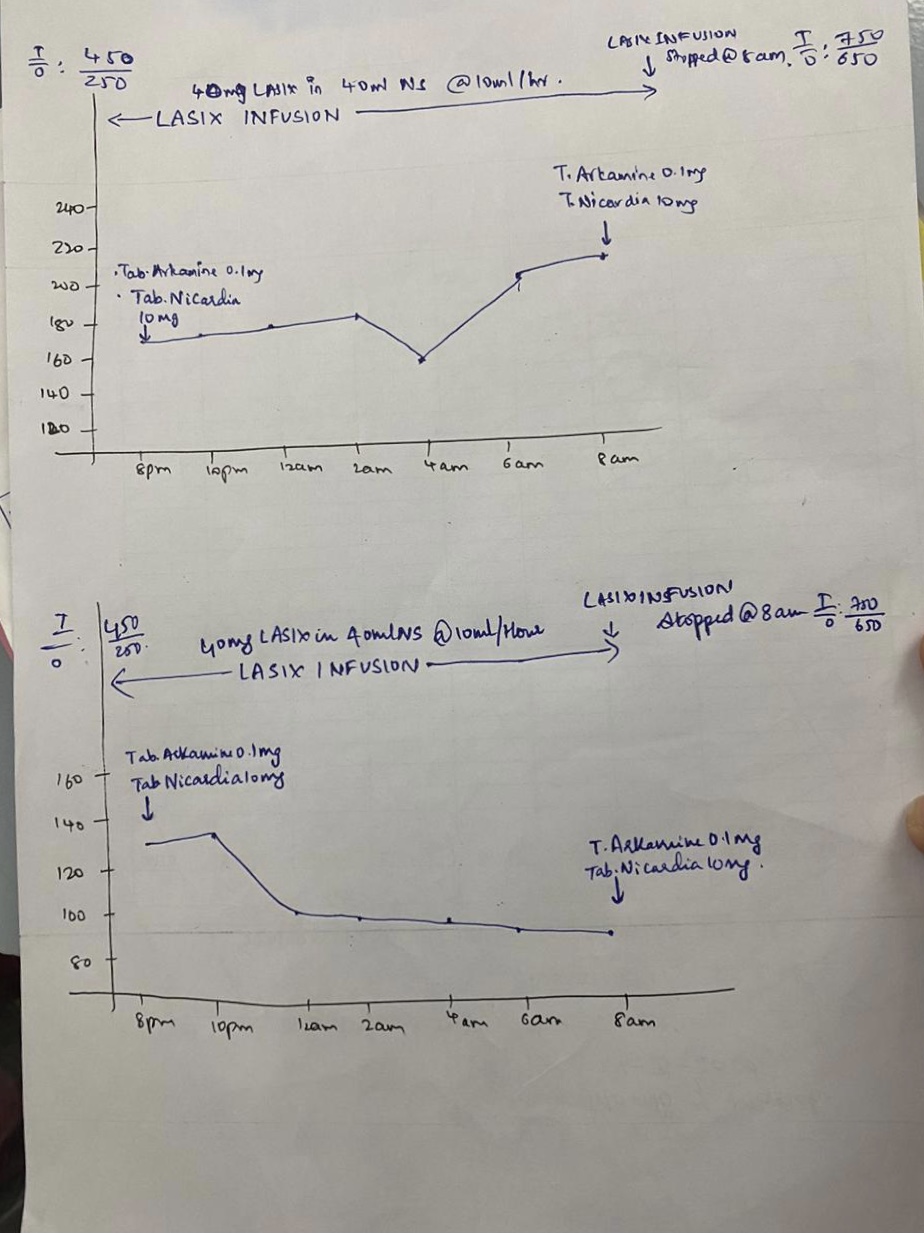 LASIX INFUSION
I/O : 450/250
Stopped @ 8am. I/O : 750/650
40mg LASIX in 40ml NS @10ml/hr.
LASIX INFUSION
T. Arkamine 0.1mg
T. Nicardia 10mg
240
220
200
180
160
140
120
· Tab. Arkamine 0.1mg
· Tab. Nicardia
10mg
8pm 10pm 12am 2am 4am 6am 8am
LASIX INFUSION
I/O : 450/250.
40mg LASIX in 40ml NS @10ml/Hour
Stopped @ 8am I/O : 750/650
LASIX INFUSION
Tab. Arkamine 0.1mg
Tab Nicardia 10mg
160
140
120
100
80
T. Arkamine 0.1mg
Tab. Nicardia 10mg.
8pm 10pm 12am 2am 4am 6am 8am